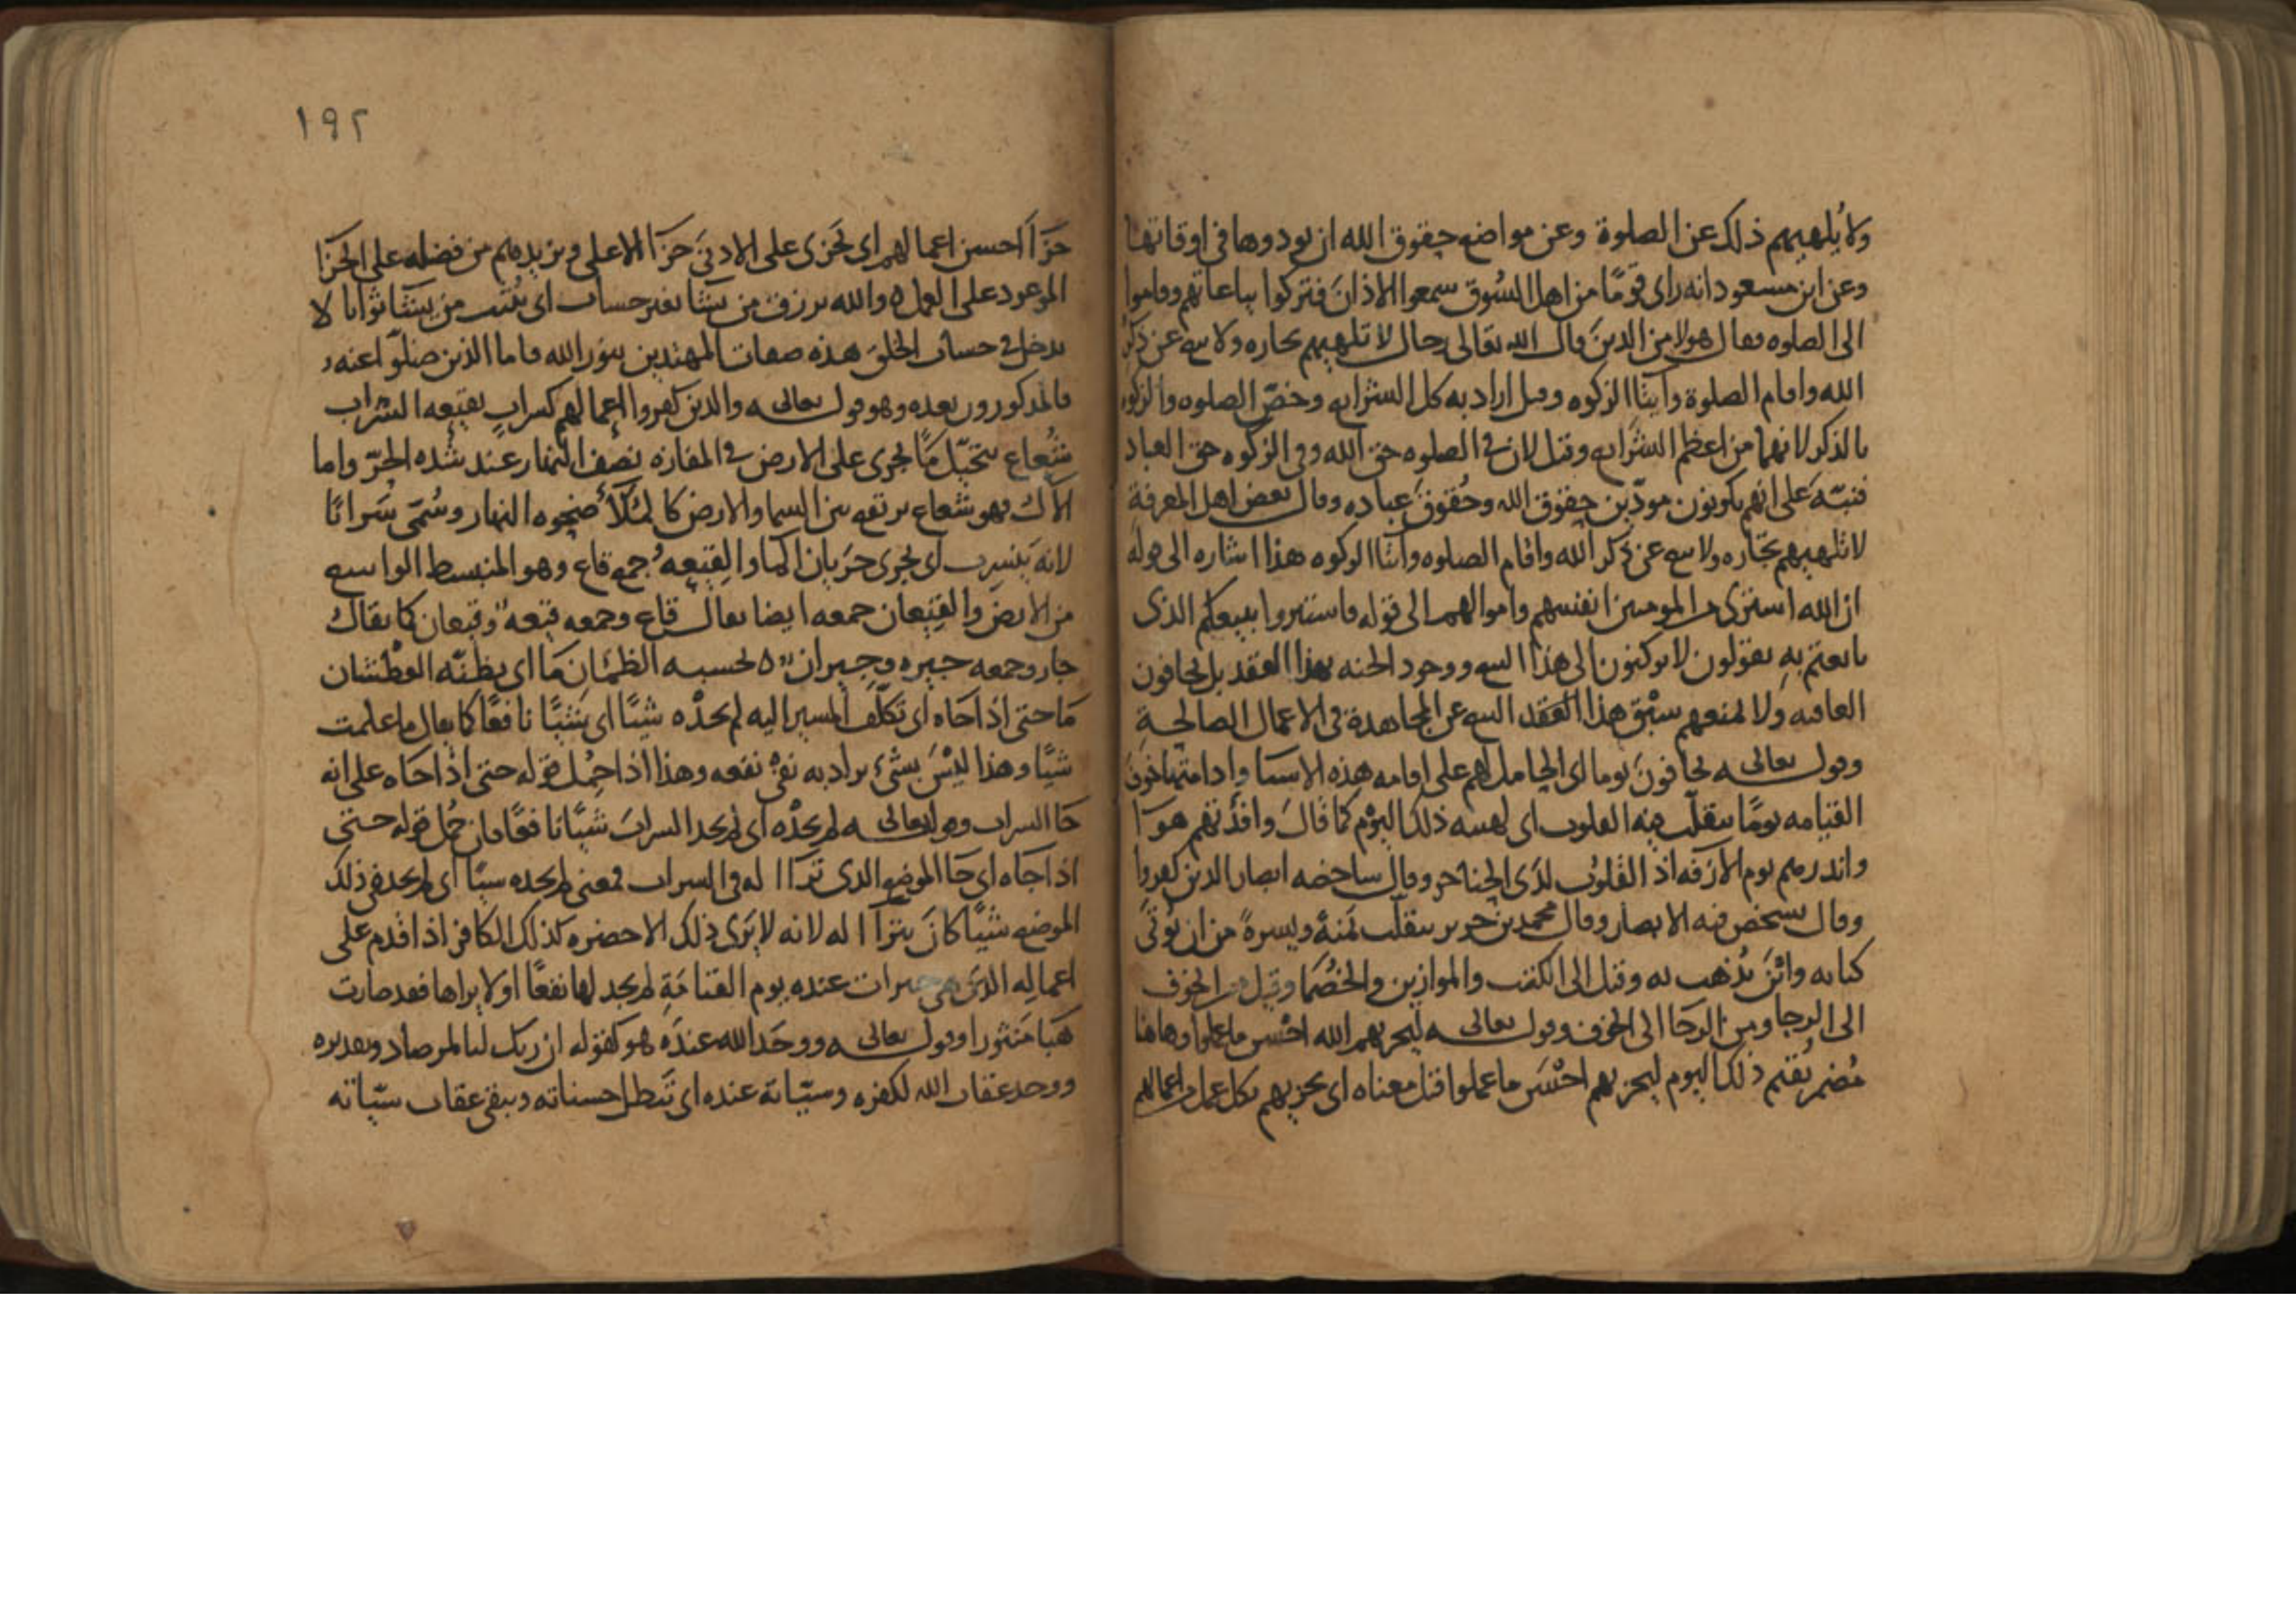 ولا يُلهيهم ذلك عن الصلوة وعن مواضع حقوق الله ان يودوها في اوقاتها
وعن ابن مسعود انه راى قومًا من اهل السُوق سمعوا الاذانَ فتركوا بياعاتهم وقاموا
الى الصلوه فقال هولا من الذينَ قال الله تعالى رجال لا تلهيهم تجاره ولا بيع عن ذكرِ
الله واقام الصلوة وايتا الزكوه وقيل اراد به كل الشرايع وخصّ الصلوه والزكوه
بالذكر لانهما من اعظم الشرايع وقيل لان في الصلوه حق الله وفي الزكوه حق العباد
فنبّهَ على انهم يكونون مودّين حقوق الله وحُقوقَ عباده وقال بعض اهل المعرفةِ
لا تلهيهم تجّاره ولا بيع عن ذكر الله واقام الصلوه وايتا الزكوه هذا اشاره الى قوله
ان الله اشترى من المومنين انفسهم واموالهم الى قوله فاستبشروا ببيعكم الذى
بايعتم به يقولون لا يركنون الى هذا البيع ووجود الجنه بهذا العقد بل يخافون
العاقبه ولا يمنعهم سبْق هذا العَقد البيع عن المجاهدة في الاعمال الصالحةِ
وقول تعالى يخافونَ يوما اى الحامل لهم على اقامه هذه الاشيا وادامتها خوفَ
القيامه يومًا تتقلّب فيه القلوب اى لهيبه ذلك اليوْم كما قالَ وافئدتهم هوآ
وانذرهم يوم الآزفه اذ القلوُب لدَى الحناجر وقال شاخصه ابصار الذين كفروا
وقال تشخص فيه الابصار وقال محمد بن جرير تتقلّب يَمنةً ويسرةً من اين يُوتَى
كتابه واين يُذهب به وقيل الى الكتب والموازين والخصُما وقيل من الخوف
الى الرجا ومن الرجَا الى الخوف وقول تعالى ليجزيهم الله احْسن ما عملوا وهاهنا
مُضمر يُقيم ذلك اليوم ليجزيهم احْسَن ما عملوا قيل معناه اى يجزيهم بكل عمل من اعمالهم
١٩٢
جزآ احسن اعمالهم اى يَجزى على الادنَى جزآ الاعلى ويزيدهم من فضله على الجزآ
الموعود على العمل ه والله يرزق من يشا بغير حساب اى يُثيب من يشآ ثوابا لا
يدخل في حساب الخلق هذه صفات المهتدين بنور الله فاما الذين ضلوّا عنه
فالمذكورون بعده وهو قول تعالى والذين كفروا اعمالهم كسرابٍ بقيعه السَراب
شُعاع يتخيّل مآ يجرى على الارض في المفازه نصف النهار عند شده الحرّ واما
الآل فهو شعاع يرتفع بين السما والارض كالملآ ضحوه النهار وسُمّى سَرابًا
لانه يَنسرب اى يجرى جرَيان الما والقيعهُ جمع قاع وهو المنبسط الواسع
من الارض والقِيعان جمعه ايضا يقال قاع وجمعه قيعه وقيعان كما يقال
جار وجمعه جيره وجيران ه يحسبه الظمْان مآ اى يظنّه العطْشان
مآ حتى اذا جاه اى تكلّف المسير اليه لم يجدْه شيًا اى شيًا نافعًا كما يقال ما علمت
شيًا وهذا ليْسَ بشىء يراد به نفى نفعه وهذا اذا حُمل قوله حتى اذا جاه على انه
جا السراب وقول تعالى لم يجدْه اى لم يجد السرابَ شيًا نافعًا فان حُمل قوله حتى
اذا جاه اى جا الموضع الذى ترآا له في السراب فمعنى لم يجده شيًا اى لم يجد في ذلك
الموضع شيًا كانَ يترآا له لانه لا يَرَى ذلك الا حضره كذلك الكافر اذا قدم على
اعماله التى هى عنده يوم القيامَةِ لم يجد لها نفعًا اولا يراها فقد صارت
هبَا منثورا وقول تعالى ووجدَ الله عندَه هو كقوله ان ربك لبا لمرصاد وتقديره
ووجد عقاب الله لكفره وسيّاته عنده اى تَبطل حسناته ويبقى عقاب سيّاته